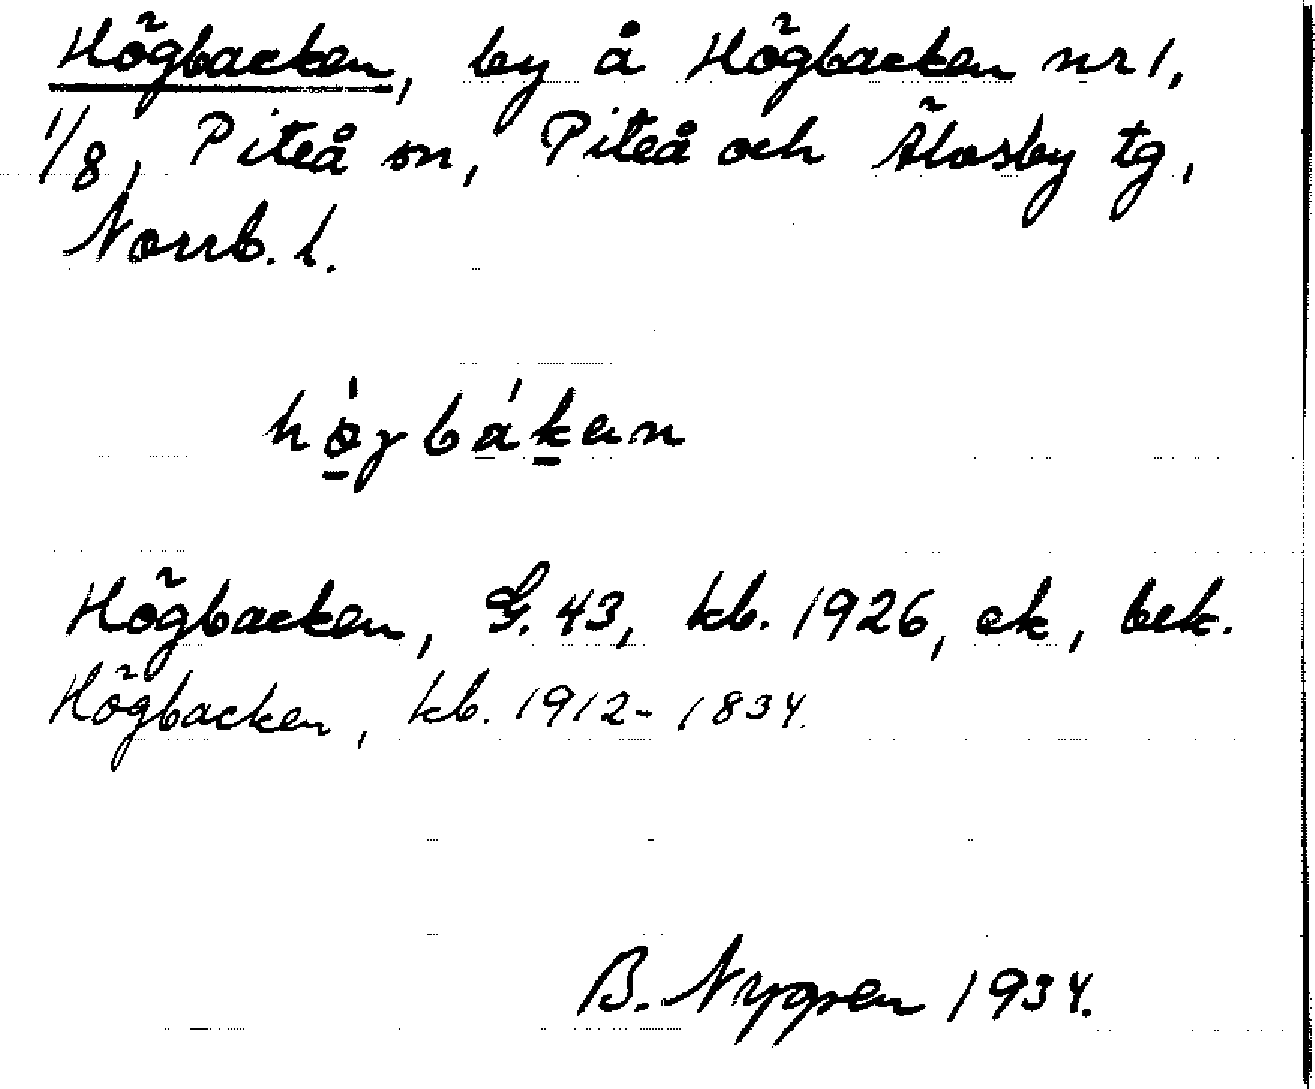 Högbacken, by å Högbacken nr 1,
1/8, Piteå sn, Piteå och Älvsby tg,
Norrb. l.
högbákan
Högbacken, G. 43, kb. 1926, ek, bek.
Högbacken, kb. 1912-1834.
B. Nygren 1934.